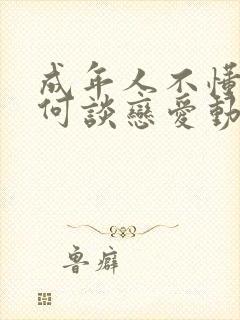 成年人不懂
何談戀愛動
魯癖